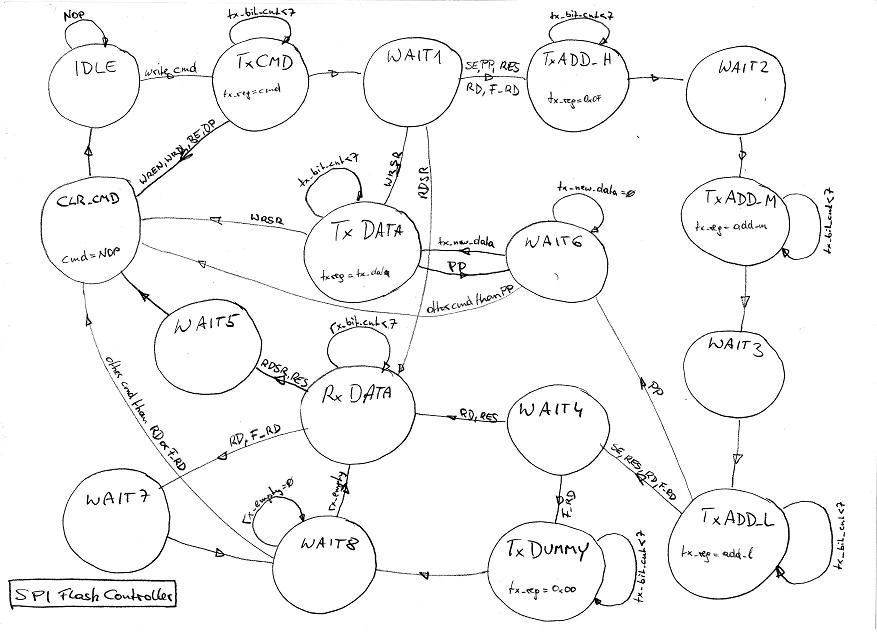 NOP
IDLE
write cmd
tx_bit_cnt<7
TxCMD
tx_reg=cmd
WAIT1
SE,PP,RES
RD,F_RD
tx_bit_cnt<7
TxADD_H
WAIT2
WREN,WRDI,BE,DP
CLR_CMD
cmd=NOP
WRSR
tx_bit_cnt<7
Tx DATA
tx_reg=tx_data
WRSR
RDSR
tx_new_data
PP
tx_new_data=ø
WAIT6
other cmd than PP
TxADD_M
tx_reg=add_m
tx_bit_cnt<7
WAIT5
RDSR,RES
rx_bit_cnt<7
Rx DATA
WAIT3
PP
RD,RES
WAIT4
SE,RES,RD,F_RD
other cmd than RD or F_RD
RD,F_RD
WAIT7
rx_empty=ø
rx_empty
WAIT8
F_RD
TxDUMMY
tx_reg=0x00
tx_bit_cnt<7
TxADD_L
tx_reg=add_l
tx_bit_cnt<7
SPI Flash Controller